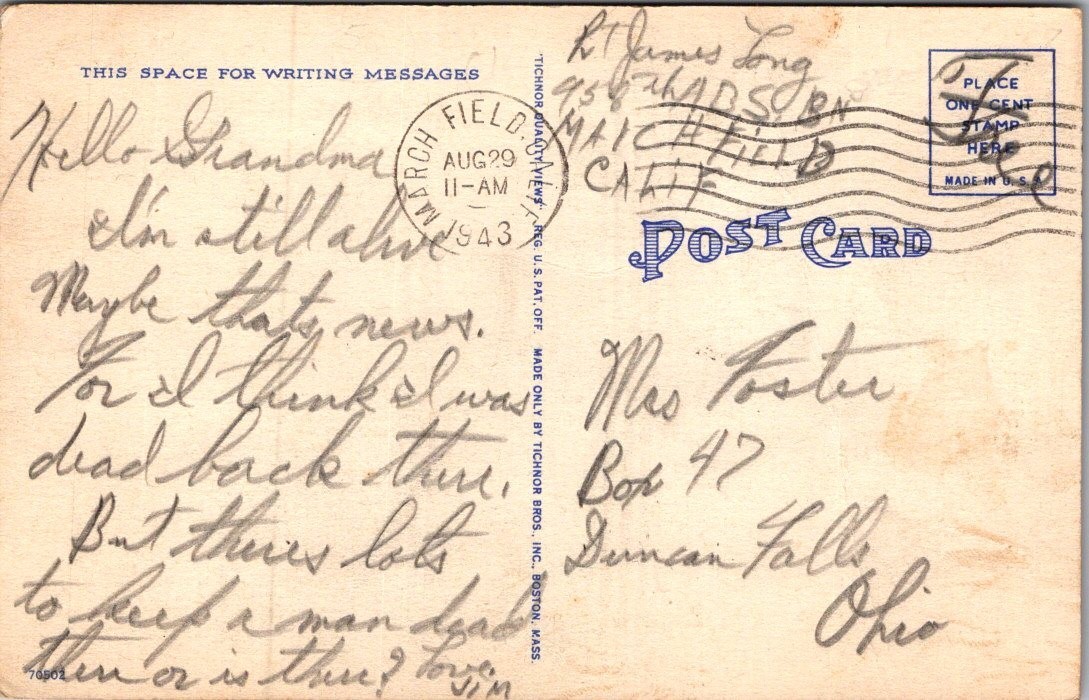 THIS SPACE FOR WRITING MESSAGES
Hello Grandma
I'm still alive
Maybe thats news.
For I think I was
dead back there.
But theres lots
to keep a man dead
there or is there? Love
Jim
70502
MARCH FIELD, CALIF.
AUG 29
11-AM
1943
"TICHNOR QUALITY VIEWS" REG. U. S. PAT. OFF. MADE ONLY BY TICHNOR BROS., INC., BOSTON, MASS.
James Long
958th A.B.S. BN
MARCH FIELD
CALIF
Free
PLACE
ONE CENT
STAMP
HERE
MADE IN U.S.A.
POST CARD
Mrs Foster
Box 47
Duncan Falls
Ohio